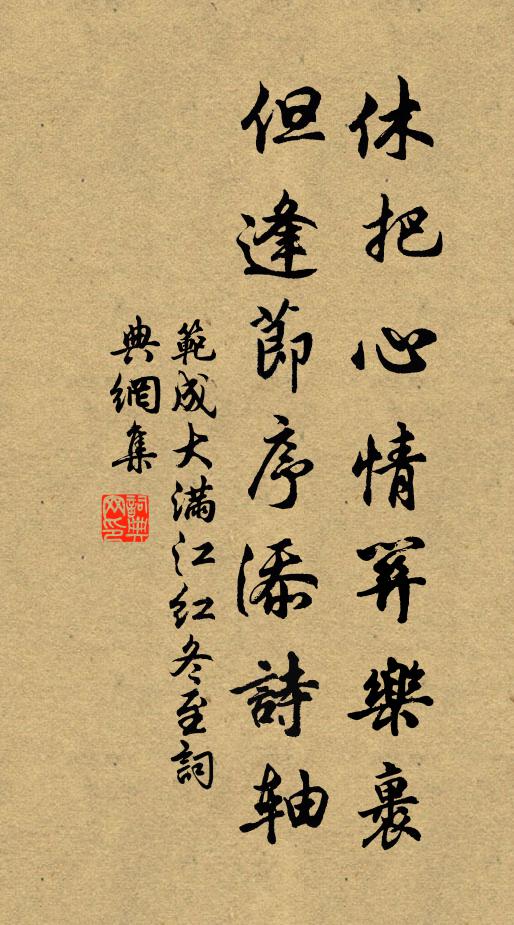 休把心情關樂裹
但逢節序添詩軸
範成大滿江紅冬至詞
典網集
詞典网印